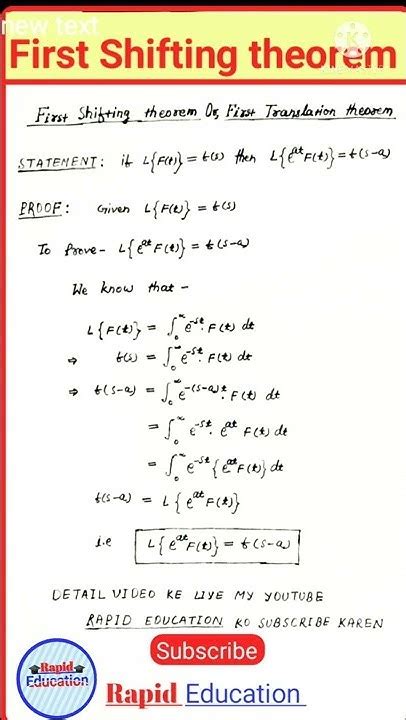 new text
First Shifting theorem
First Shifting theorem Or, First Translation theorem
STATEMENT: if L{F(t)} = f(s) then L{e^{at} F(t)} = f(s-a)
PROOF: Given L{F(t)} = f(s)
To Prove - L{e^{at} F(t)} = f(s-a)
We know that -
L{F(t)} = ∫₀^∞ e^{-st}. F(t) dt
⇒ f(s) = ∫₀^∞ e^{-st}. F(t) dt
⇒ f(s-a) = ∫₀^∞ e^{-(s-a)t}. F(t) dt
= ∫₀^∞ e^{-st}. e^{at} F(t) dt
= ∫₀^∞ e^{-st} {e^{at} F(t)} dt
f(s-a) = L{e^{at} F(t)}
i.e L{e^{at} F(t)} = f(s-a)
DETAIL VIDEO KE LIYE MY YOUTUBE
RAPID EDUCATION KO SUBSCRIBE KAREN
Subscribe
Rapid
Education
Rapid Education